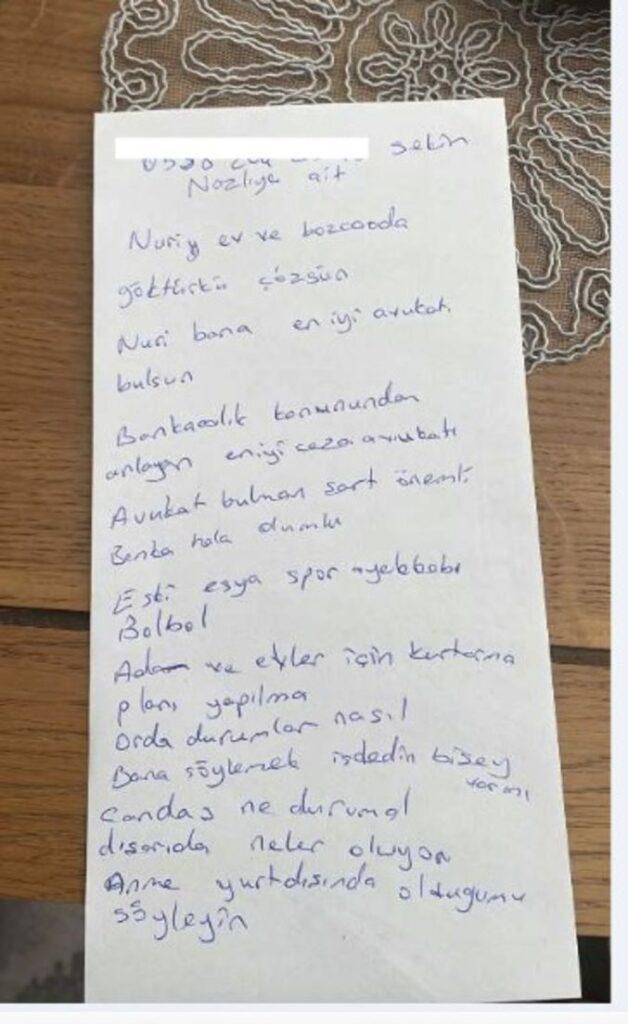 sekin
Nazlıya ait
Nuriy ev ve bozcaada
göktürkü çözsün
Nuri bana en iyi avukatı
bulsun
Bankacılık konumundan
anlayan en iyi ceza avukatı
Avukat bulman şart önemli
Benka hala
Eski eşya spor ayakkabı
Bolbol
Adam ve evler için kurtarma
planı yapılma
Orda durumlar nasıl
Bana söylemek isdedin bişey
varmı
Candaş ne durumd
dışarıda neler oluyor
Anme yurtdışında olduğumu
söyleyin